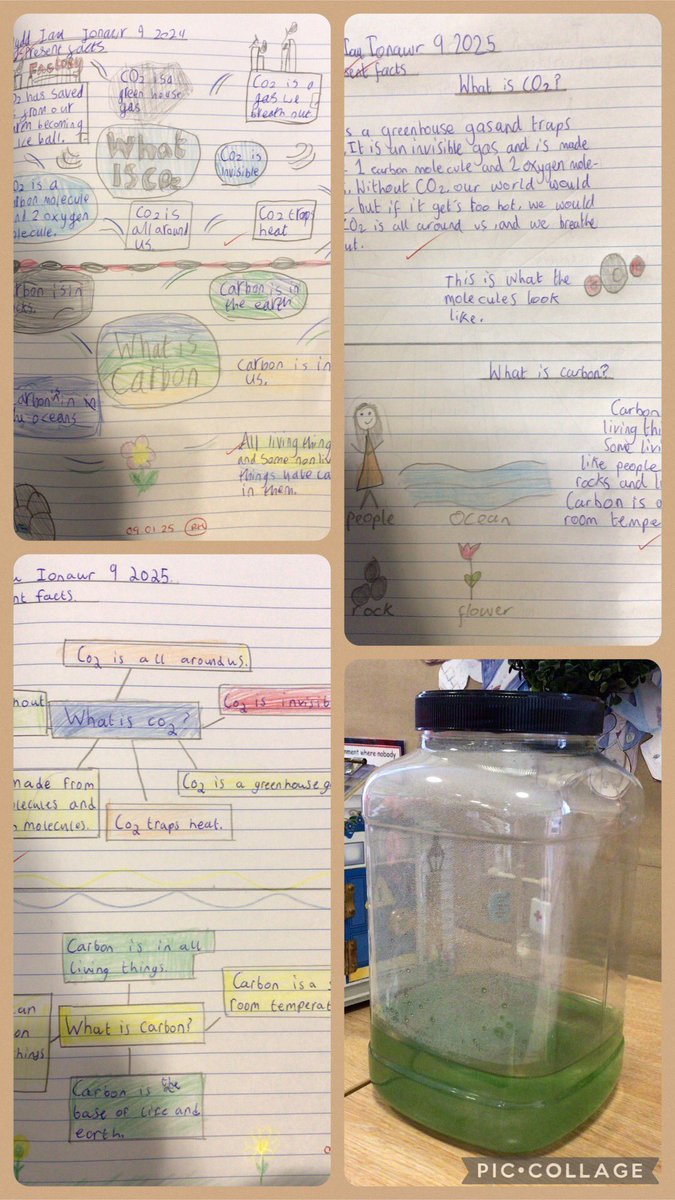 Iau Ionawr 9 2024
present facts
Factory
CO2 is a
green house
gas
CO2 is a
gas we
breath out.
O2 has saved
from our
becoming
ice ball.
What
IS CO2
CO2 is
invisible
CO2 is a
molecule
and 2 oxygen
molecule.
CO2 is
all around
us.
CO2 traps
heat
Carbon is in
Carbon is in
the earth
What is
Carbon
Carbon is in
us.
Carbon is in
the oceans
All living thing
and some non li
things have ca
in them.
09.01.25
Ionawr 9 2025
facts
What is CO2?
s a greenhouse gas and traps
. It is an invisible gas and is made
1 carbon molecule and 2 oxygen mole-
. Without CO2 our world would
, but if it get's too hot, we would
CO2 is all around us, and we breathe
out.
This is what the
molecules look
like.
C
What is carbon?
Carbon
living thi
Some livi
like people
rocks and l
Carbon is a
room tempe
people
ocean
rock
flower
Ionawr 9 2025.
nt facts.
Co2 is all around us.
hout
What is co2?
Co2 is invisib
made from
molecules and
molecules.
Co2 is a greenhouse g
Co2 traps heat.
Carbon is in all
living things.
Carbon is a s
room temperat
an
on
things
What is Carbon?
Carbon is the
base of life and
earth.
nment where nobody
PIC•COLLAGE